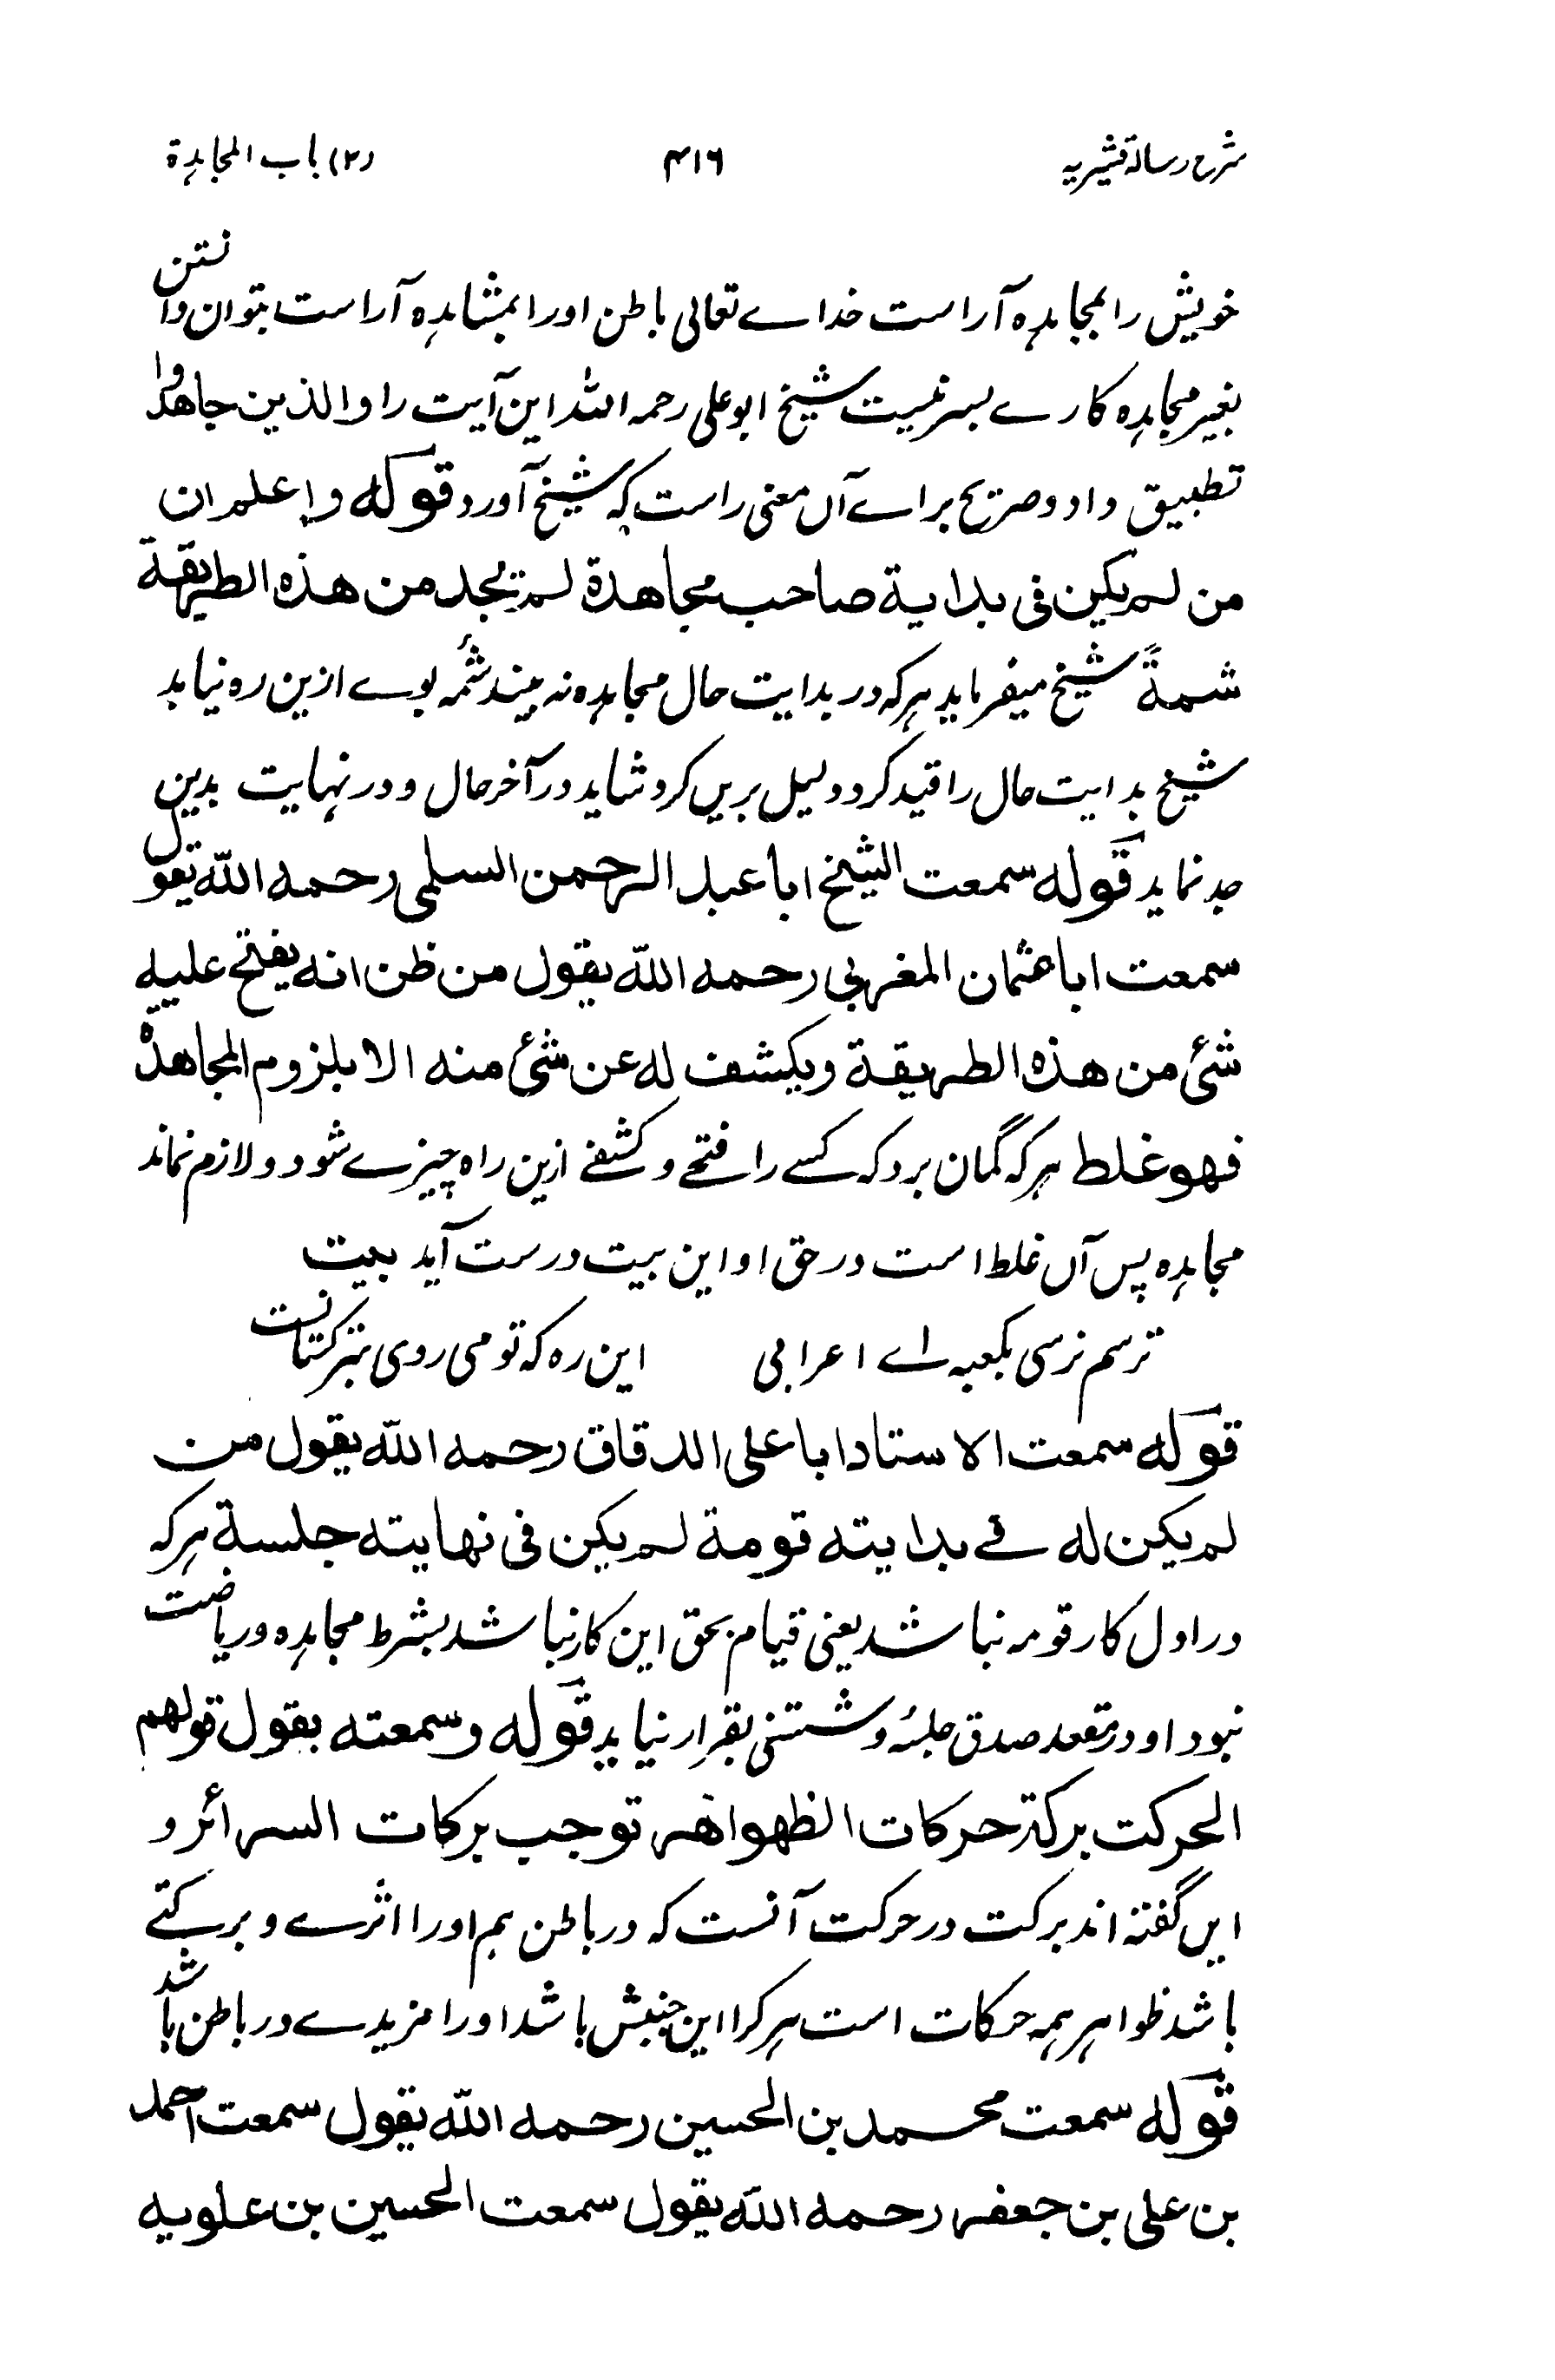 شرح رسالۂ قشیریہ ۴۱۶ (۲) باب المجاہدۃ
خویش را بمجاہدہ آراست خداے تعالی باطن اورا بمشاہدہ آراست بتوان دانستن
بغیر مجاہدہ کارے بسر نیست شیخ ابو علی رحمہ اللہ این آیت را والذین جاھدوا
تطبیق داد و صریح براے آں معنی راست کہ شیخ آورد قولہ واعلم ان
من لم یکن فی بدایۃ صاحب مجاھدۃ لم یجد من ھذہ الطریقۃ
شمۃً شیخ میفرماید ہرکہ در بدایت حال مجاہدہ نہ بیند شمۂ بوے ازین رہ نیابد
شیخ بدایت حال را قید کرد دلیل بریں کرد شاید در آخر حال و در نہایت بدین
جد نماید قولہ سمعت الشیخ ابا عبد الرحمن السلمی رحمہ اللہ یقول
سمعت ابا عثمان المغربی رحمہ اللہ یقول من ظن انہ یفتح علیہ
شئ من ھذہ الطریقۃ ویکشف لہ عن شئ منہ الا بلزوم المجاھدۃ
فھو غلط ہرکہ گمان برد کہ کسے را فتحے و کشفے ازین راہ چیزے شود و لازم نماند
مجاہدہ پس آں غلط است در حق او این بیت درست آید بیت
ترسم نرسی بکعبہ اے اعرابی این رہ کہ تو می روی بترکستانست
قولہ سمعت الاستاد ابا علی الدقاق رحمہ اللہ یقول من
لم یکن لہ فے بدایتہ قومۃ لم یکن فی نھایتہ جلسۃ ہرکہ
در اول کار قومہ نباشد یعنی قیام بحق این کار نباشد بشرط مجاہدہ و ریاضت
نبود او در مقعد صدق جلسۂ و نشستنی بقرار نیابد قولہ وسمعتہ یقول قولھم
الحرکت برکۃ حرکات الظواھر توجب برکات السرائر و
ایں گفتہ اند برکت در حرکت آنست کہ در باطن ہم اورا اثرے و برکتے
باشد ظواہر ہمہ حرکات است ہرکرا این جنبش باشد اورا مزیدے در باطن باشد
قولہ سمعت محمد بن الحسین رحمہ اللہ یقول سمعت احمد
بن علی بن جعفر رحمہ اللہ یقول سمعت الحسین بن علویہ